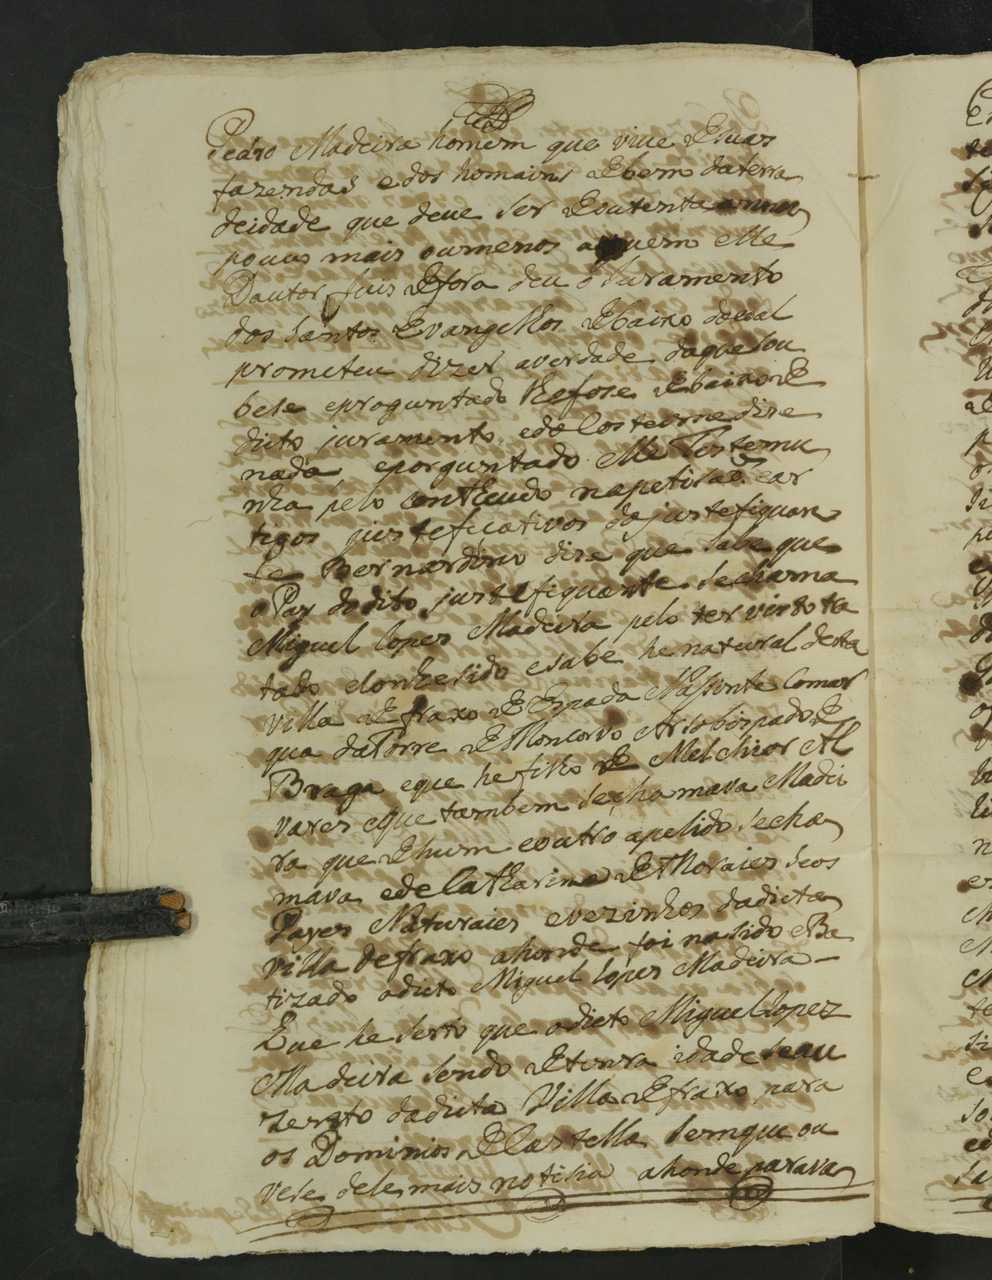 Pedro Madeira homem que vive de suas
fazendas e dos homains de bem da terra
de idade que deve ser de outenta annos
pouco mais ou menos a quem elle
Doutor Juis de fora deu o Juramento
dos Santos Evangelhos debaixo do coal
prometeu dizer a verdade do que sou
bese e proguntado fose debaixo de
dicto juramento e do costume dise
nada e porguntado elle Testemu
nha pelo contheudo na petisaõ e ar
tigos justeficativos do justefiquan
te Bernardino dise que sabe que
o Pay do dito justefiquante se chama
Miguel lopes Madeira pelo ter visto ta
tado e conhesido e sabe he natural desta
villa de fraxo de Espada Masinta Comar
qua da Torre de Moncorvo Arsobispado de
Braga e que he filho de Melchior Al
vares e que tambem se chamava Madei
ra que de hum e outro apelido se cha
mava e de Catharina de Moraies seos
Payes Naturaies e vezinhos da dicta
Villa de fraxo ahonde foi nasido e Ba
tizado o dicto Miguel lopes Madeira
E que he serto que o dicto Miguel lopez
Madeira sendo de tenra idade se au
zento da dicta Villa de fraxo para
os Dominios de Castella sem que ou
vese dele mais notisia ahonde parava